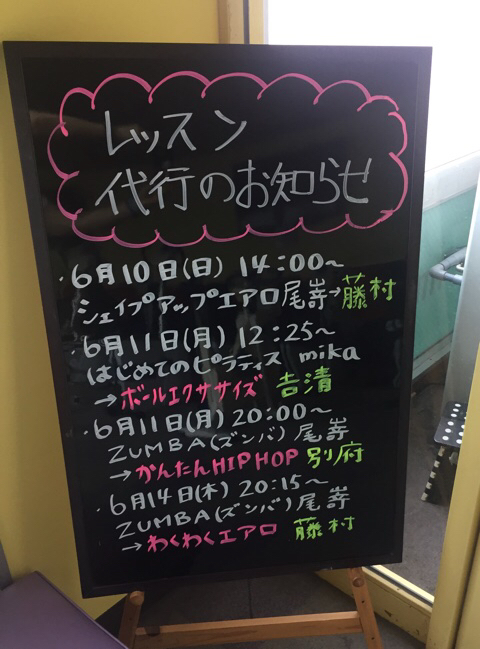 レッスン
代行のお知らせ
・6月10日(日) 14:00〜
シェイプアップエアロ尾嵜→藤村
・6月11日(月) 12:25〜
はじめてのピラティス mika
→ボールエクササイズ 吉清
・6月11日(月) 20:00〜
ZUMBA(ズンバ) 尾嵜
→かんたんHIPHOP 別府
・6月14日(木) 20:15〜
ZUMBA(ズンバ) 尾嵜
→わくわくエアロ 藤村